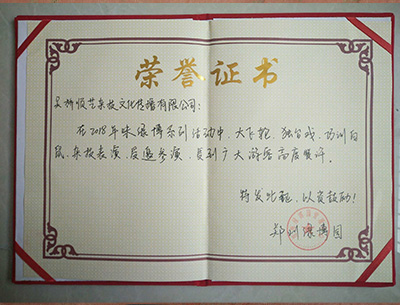 荣誉证书
吴桥恒艺杂技文化传播有限公司:
在2018年来园博系列活动中,大飞轮、独台戏、
杂技表演,应邀参演,受到广大游客高度赞评。
特发此证,以资鼓励!
郑州园博园